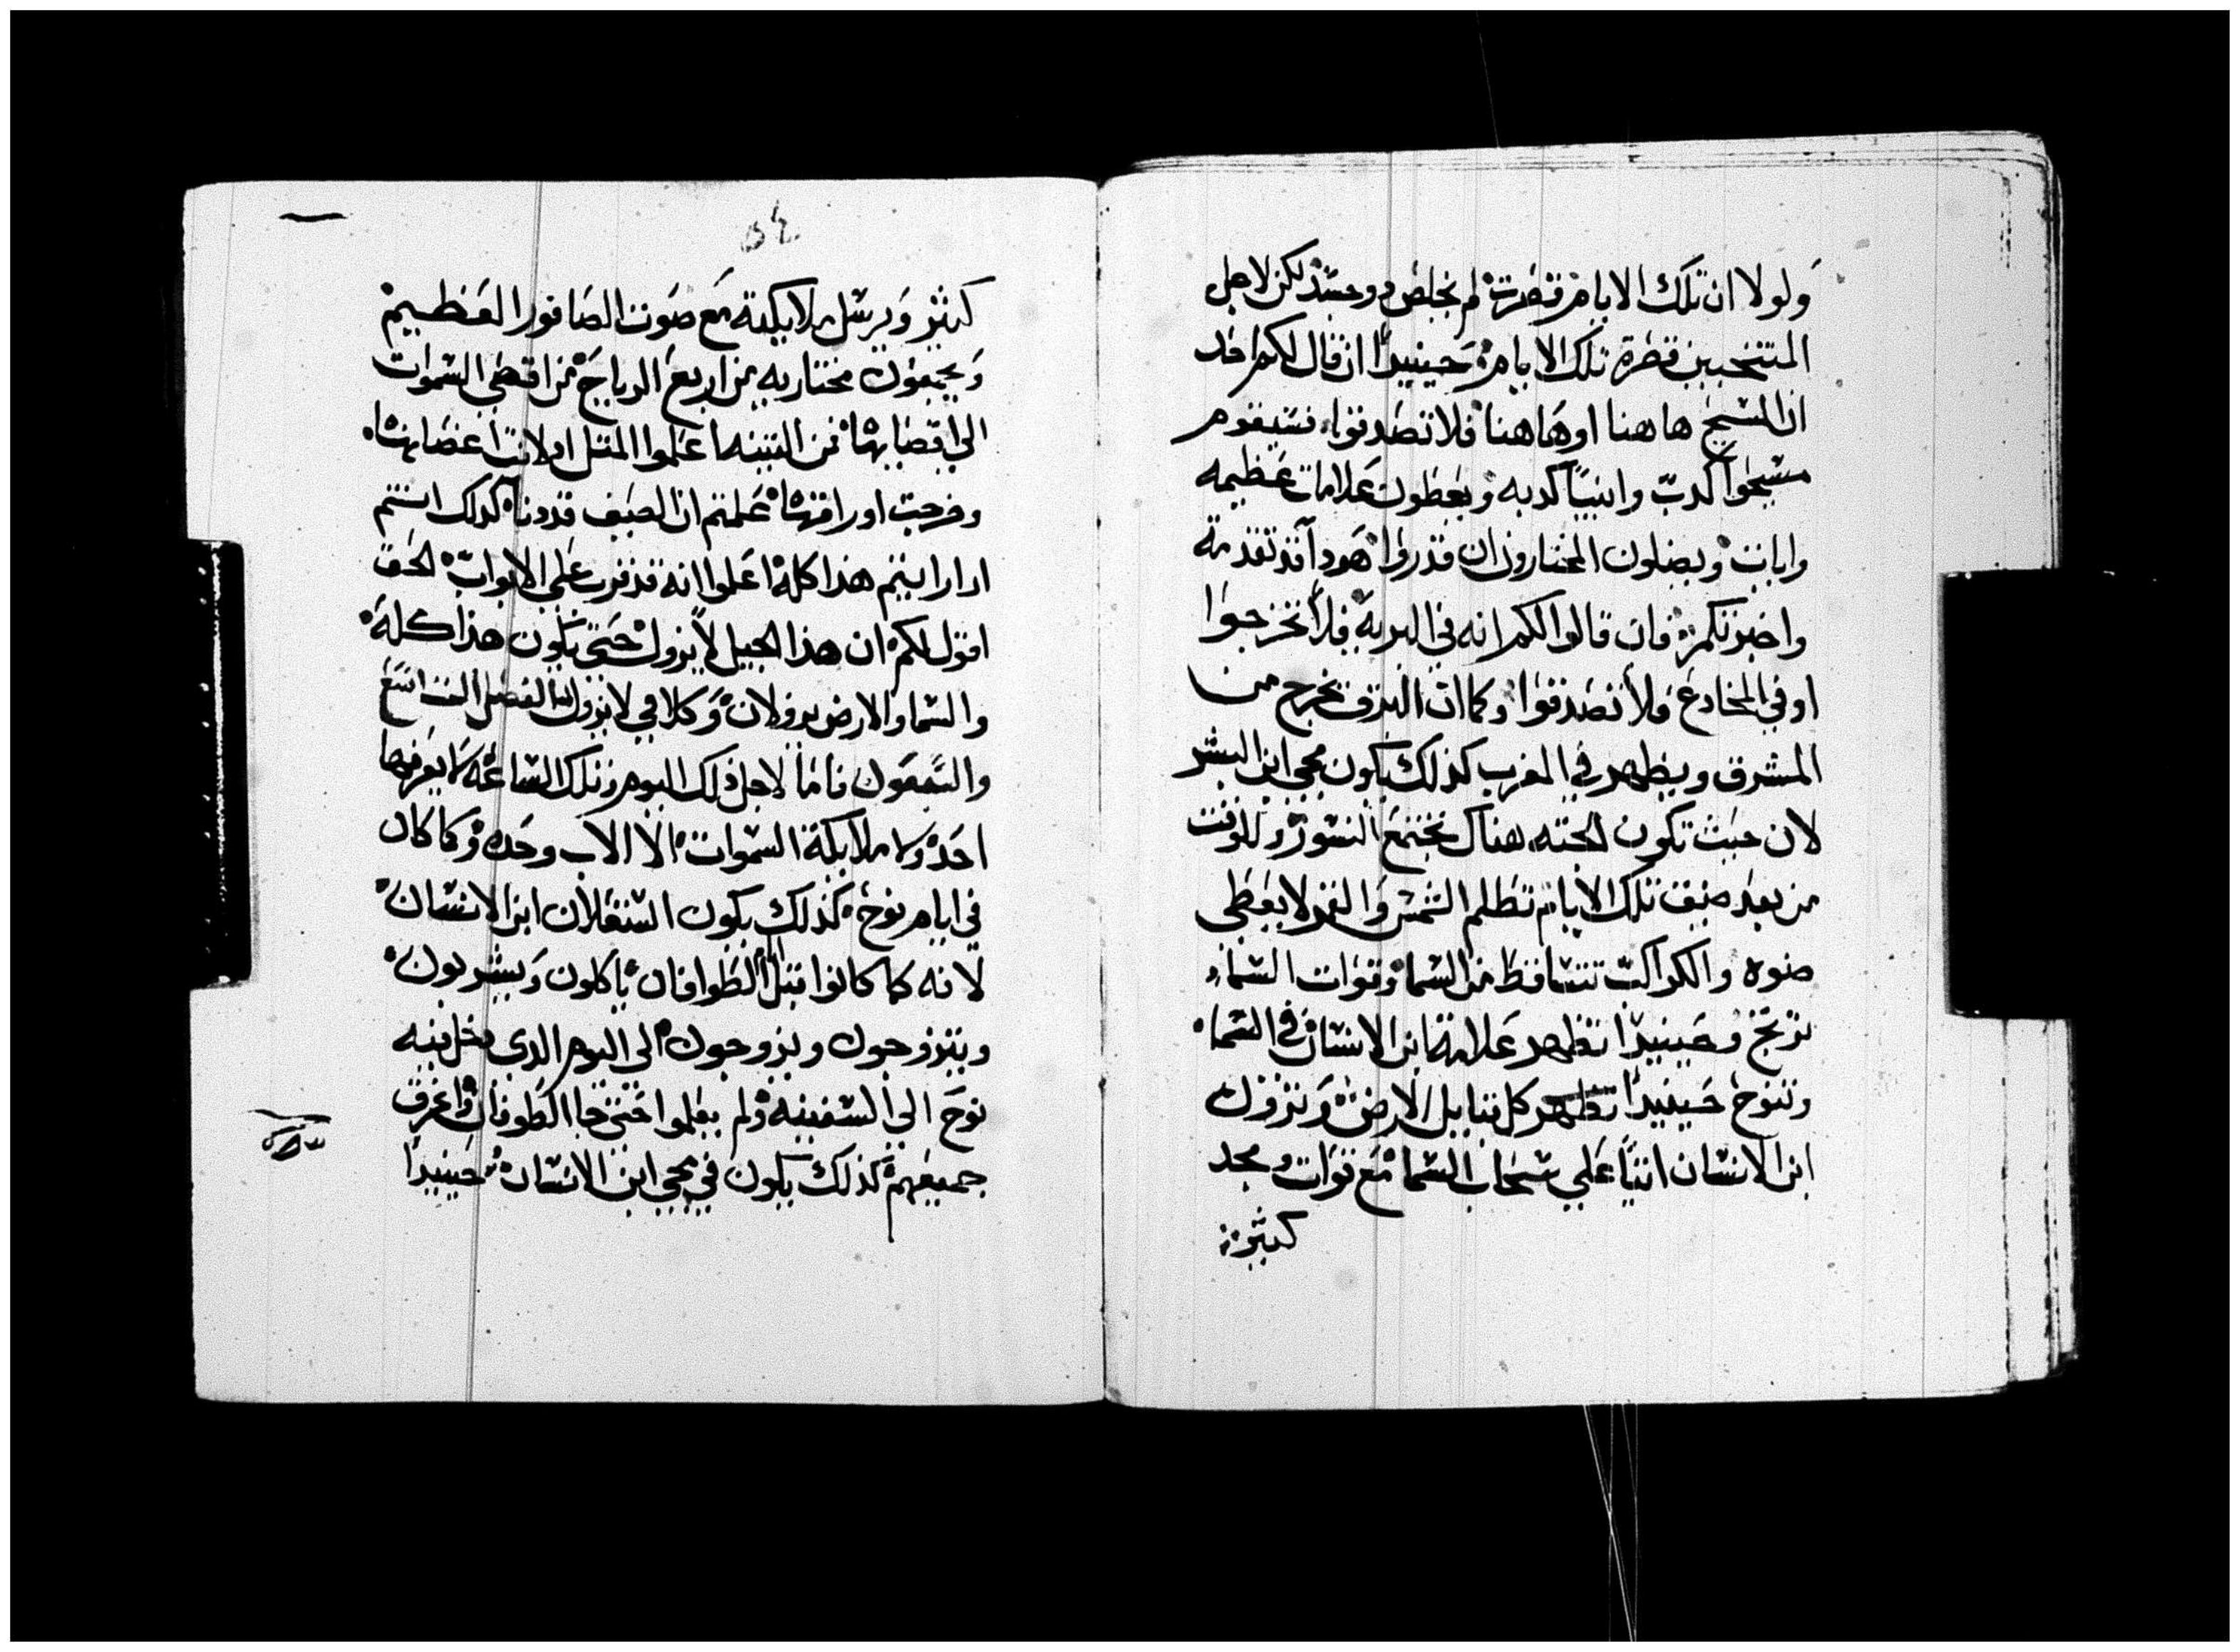 ولولا ان تلك الايام قصرت لم يخلص دو جسد لكن لاجل
المنتخبين قصرة تلك الايام حينيدا ان قال لكم احد
ان المسيح هاهنا اوهاهنا فلا تصدقوا فسيقوم
مسيحوا كدب وانبيا كدبه ويعطون علامات عظيمه
وايات ويضلون المختارون ان قدروا هودا قد تقدمة
واخبرتكم فان قالوا لكم انه في البرية فلا تخرجوا
او في المخادع فلا تصدقوا وكما ان البرق يخرج من
المشرق ويظهر في المغرب كذلك يكون مجي ابن البشر
لان حيث تكون الجته هناك تجتمع النسور وللوقت
من بعد ضيق تلك الايام تظلم الشمس والقمر لا يعطي
ضوه والكواكب تتساقط من السما وقوات السماء
ترتج وحينيدا تظهر علامة ابن الانسان في السماء
وتنوح حينيدا تظهر كل قبايل الارض وترون
ابن الانسان اتيا علي سحاب السما مع قوات ومجد
كثير
٥٤
كثير ويرسل ملايكته مع صوت الصافور العظيم
ويجمعون مختاريه من اربع الرياح من اقصي السموات
الي اقصايها فمن التينه اعلموا المتل اولانت اعضايها
وخرجت اوراقها علمتم ان الصيف قد دنا كدلك انتم
ادا رايتم هذا كله اعلموا انه قد قرب علي الابواب الحق
اقول لكم ان هذا الجيل لا يزول حتي يكون هذا كله
والسما والارض يزولان وكلامي لا يزول الفصل التاسع
والتسعون فاما لاجل ذلك اليوم وتلك الساعة لا يعرفها
احد ولا ملايكة السموات الا الاب وحده وكما كان
في ايام نوح كذلك يكون استعلان ابن الانسان
لانه كما كانوا قبل الطوافان ياكلون ويشربون
ويتزوجون ويزوجون الي اليوم الدي دخل فيه
نوح الي السفينه ولم يعلموا حتي جا الطوفان واغرق
جميعهم كذلك يكون في مجي ابن الانسان حينيدا